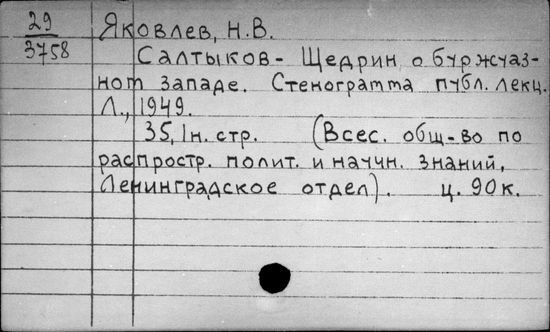 29
3758
Яковлев, Н.В.
Салтыков- Щедрин о буржуаз-
ном западе. Стенограмма публ. лекц.
Л., 1949.
35, 1 н. стр. (Всес. общ-во по
распростр. полит. и научн. знаний,
Ленинградское отдел). ц. 90 к.